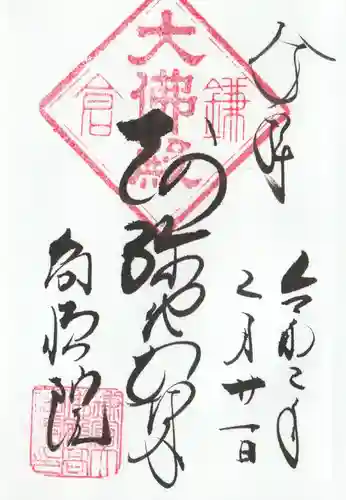 奉拝
令和二年
二月廿一日
阿弥陀如来
高徳院
鎌倉
大佛殿